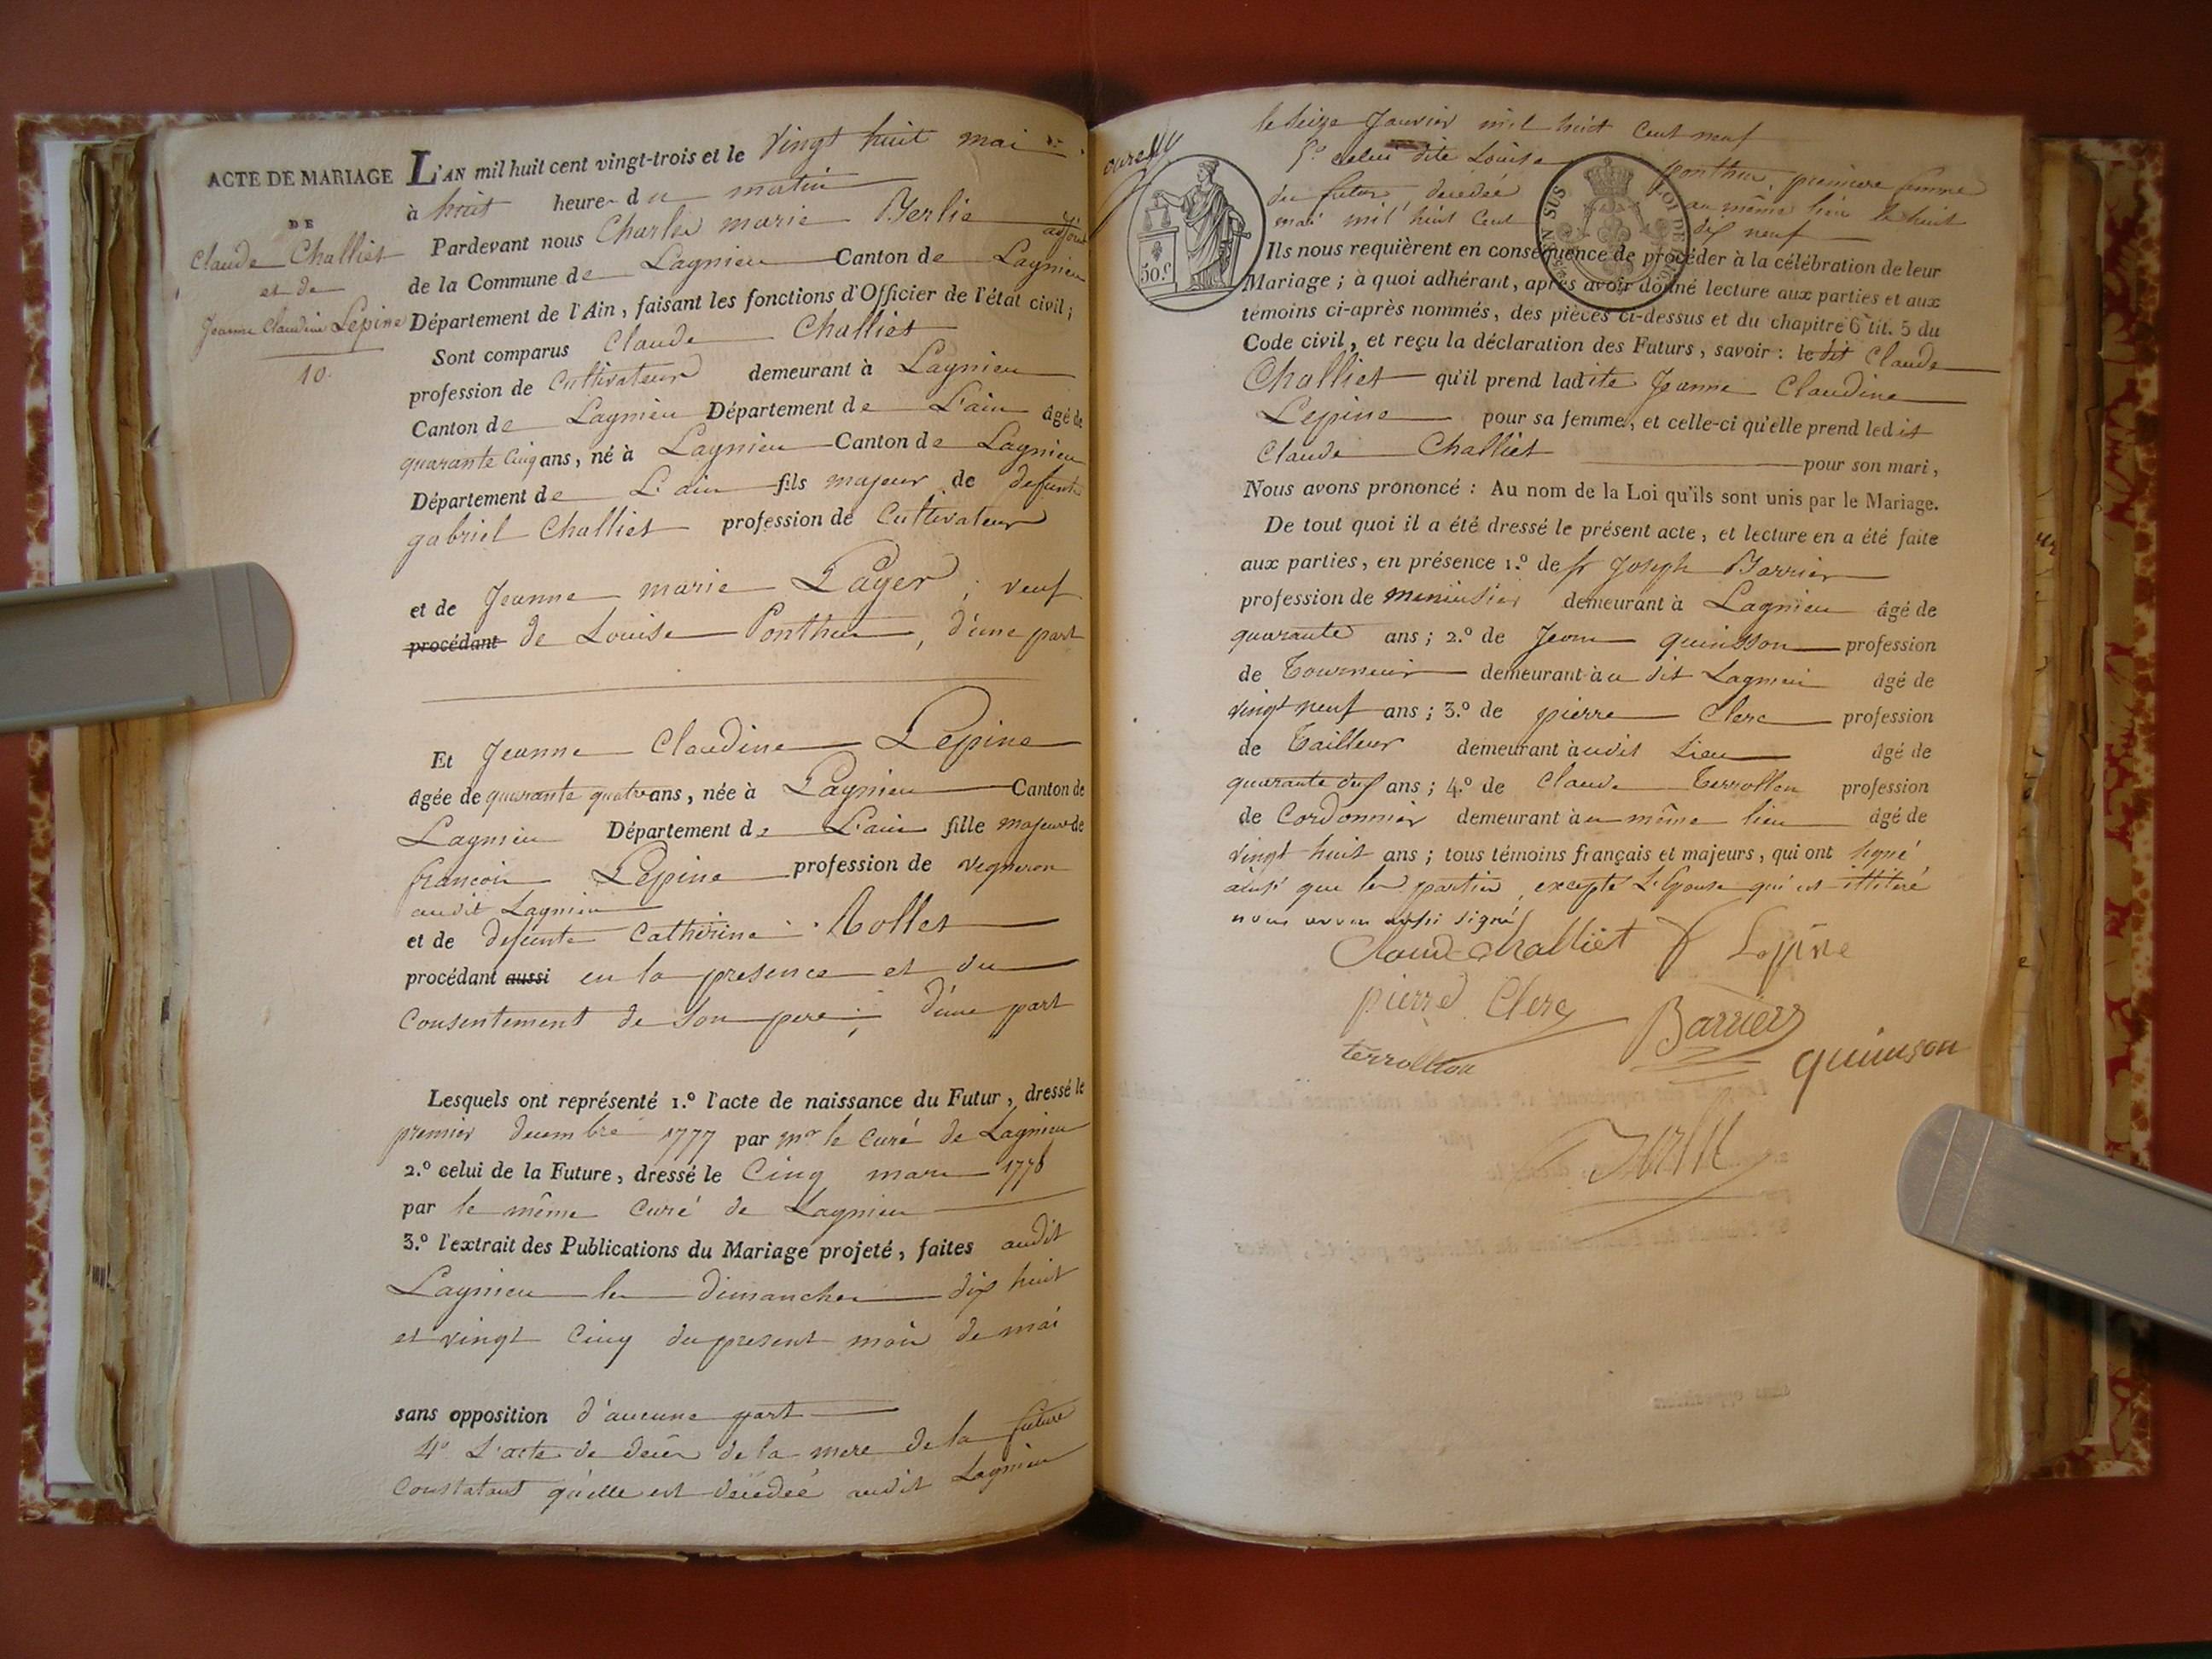 ACTE DE MARIAGE
DE
Claude Challiet
et de
Jeanne Claudine Lepine
10.
L'AN mil huit cent vingt-trois et le vingt huit mai
à huit heure du matin
Pardevant nous Charles marie Berlie adjoint
de la Commune de Lagnieu Canton de Lagnieu
Département de l'Ain, faisant les fonctions d'Officier de l'état civil;
Sont comparus Claude Challiet
profession de Cultivateur demeurant à Lagnieu
Canton de Lagnieu Département de L'ain âgé de
quarante Cinq ans, né à Lagnieu Canton de Lagnieu
Département de L'ain fils majeur de defunt
gabriel Challiet profession de Cultivateur
et de Jeanne marie Payer, veuf
procédant de Louise Ponthus, d'une part
Et Jeanne Claudine Lepine
âgée de quarante quatre ans, née à Lagnieu Canton de
Lagnieu Département de L'ain fille majeure de
francois Lepine profession de vigneron
audit Lagnieu
et de defunte Catherine
procédant aussi en la presence et du
Consentement de son pere; d'une part
Lesquels ont représenté 1.º l'acte de naissance du Futur, dressé le
premier decembre 1777 par mr le Curé de Lagnieu
2.º celui de la Future, dressé le Cinq mars 1778
par le même Curé de Lagnieu
3.º l'extrait des Publications du Mariage projeté, faites audit
Lagnieu les dimanches dix huit
et vingt Cinq du present mois de mai
sans opposition d'aucune part
4º L'acte de décès de la mere de la future
Constatant qu'elle est décedée audit Lagnieu
le seize Janvier mil huit Cent neuf
5º celui dite Louise ponthus, premiere femme
du futur decedée au même lieu le huit
mai mil huit Cent dix neuf
50.c
Ils nous requièrent en conséquence de procéder à la célébration de leur
Mariage; à quoi adhérant, après avoir donné lecture aux parties et aux
témoins ci-après nommés, des pièces ci-dessus et du chapitre 6 tit. 5 du
Code civil, et reçu la déclaration des Futurs, savoir: le dit Claude
Challiet qu'il prend ladite Jeanne Claudine
Lepine pour sa femme, et celle-ci qu'elle prend ledit
Claude Challiet pour son mari,
Nous avons prononcé: Au nom de la Loi qu'ils sont unis par le Mariage.
De tout quoi il a été dressé le présent acte, et lecture en a été faite
aux parties, en présence 1.º de Joseph Barrier
profession de menuisier demeurant à Lagnieu âgé de
quarante ans; 2.º de Jean quinsson profession
de Tourneur demeurant au dit Lagnieu âgé de
vingt neuf ans; 3.º de pierre Clerc profession
de Tailleur demeurant audit Lieu âgé de
quarante deux ans; 4.º de Claude Terrollion profession
de Cordonnier demeurant au même lieu âgé de
vingt huit ans; tous témoins français et majeurs, qui ont signé
ainsi que les parties excepté L'Epouse qui est illiteré
nous avons aussi signé
Claude Challiet f Lepine
pierre Clerc Barrier
terrollion quinson
Berlie